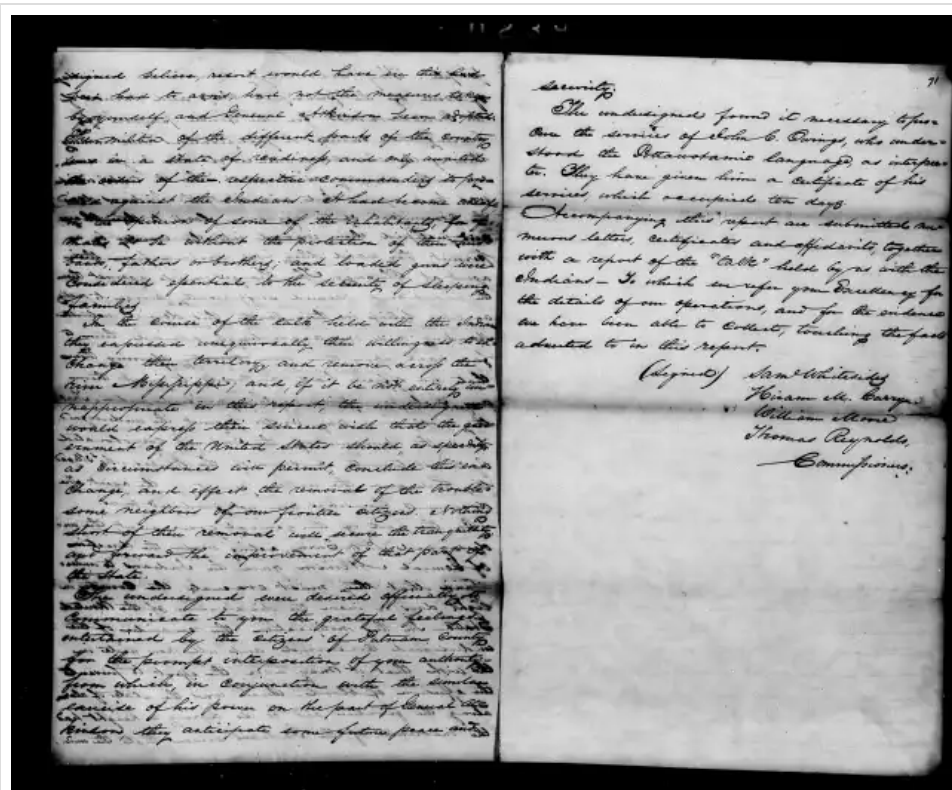 signed believe, resort would have in the
had to avoid, had not the measures taken
by yourself, and General Atkinson been adopted.
The militia of the different parts of the country
were in a state of readiness, and only awaited
the orders of their respective commanders to
against the Indians. It had become
in the opinion of some of the inhabitants, for
to be without the protection of their
fathers or brothers; and loaded guns were
considered essential to the security of sleeping
families
In the course of the talk held with the Indians
they expressed unequivocally their willingness to ex
change their territory and remove across the
River Mississippi, and if it be not entirely
inappropriate in this report, the undersigned
would express their sincere wish that the gov
ernment of the United States should, as speedily
as circumstances will permit, conclude the ex
change, and effect the removal of the trouble
some neighbors of our frontier citizens. Nothing
short of their removal will secure the tranquillity
and forward the improvement of that part of
the State.
The undersigned were desired to
communicate to you the grateful feelings
entertained by the citizens of Putnam County
for the prompt interposition of your authority
from which, in conjunction with the similar
exercise of his power on the part of General At
kinson they anticipate some future peace and
71
security.
The undersigned found it necessary to pro
cure the services of John C. Owings, who under
stood the Pottawotamie language, as interpre
ter. They have given him a certificate of his
services, which occupied ten days.
Accompanying this report are submitted nu
merous letters, certificates and affidavits, together
with a report of the "talk" held by us with the
Indians – To which we refer your Excellency for
the details of our operations, and for the evidence
we have been able to collect, touching the facts
adverted to in this report.
(Signed) Saml Whiteside
Hiram M. Curry
William Moore
Thomas Reynolds,
Commissioners.